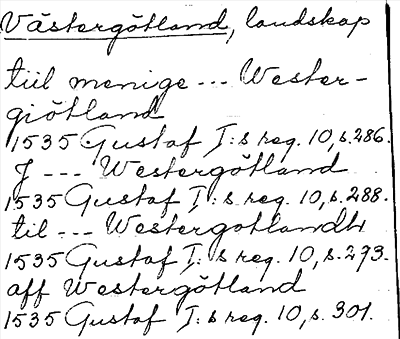 Västergötland, landskap
tiil menige --- Wester-
giötland
1535 Gustaf I:s reg. 10, s. 286.
J --- Westergötland
1535 Gustaf I:s reg. 10, s. 288.
til --- Westergotlandh
1535 Gustaf I:s reg. 10, s. 293.
aff Westergötland
1535 Gustaf I:s reg. 10, s. 301.